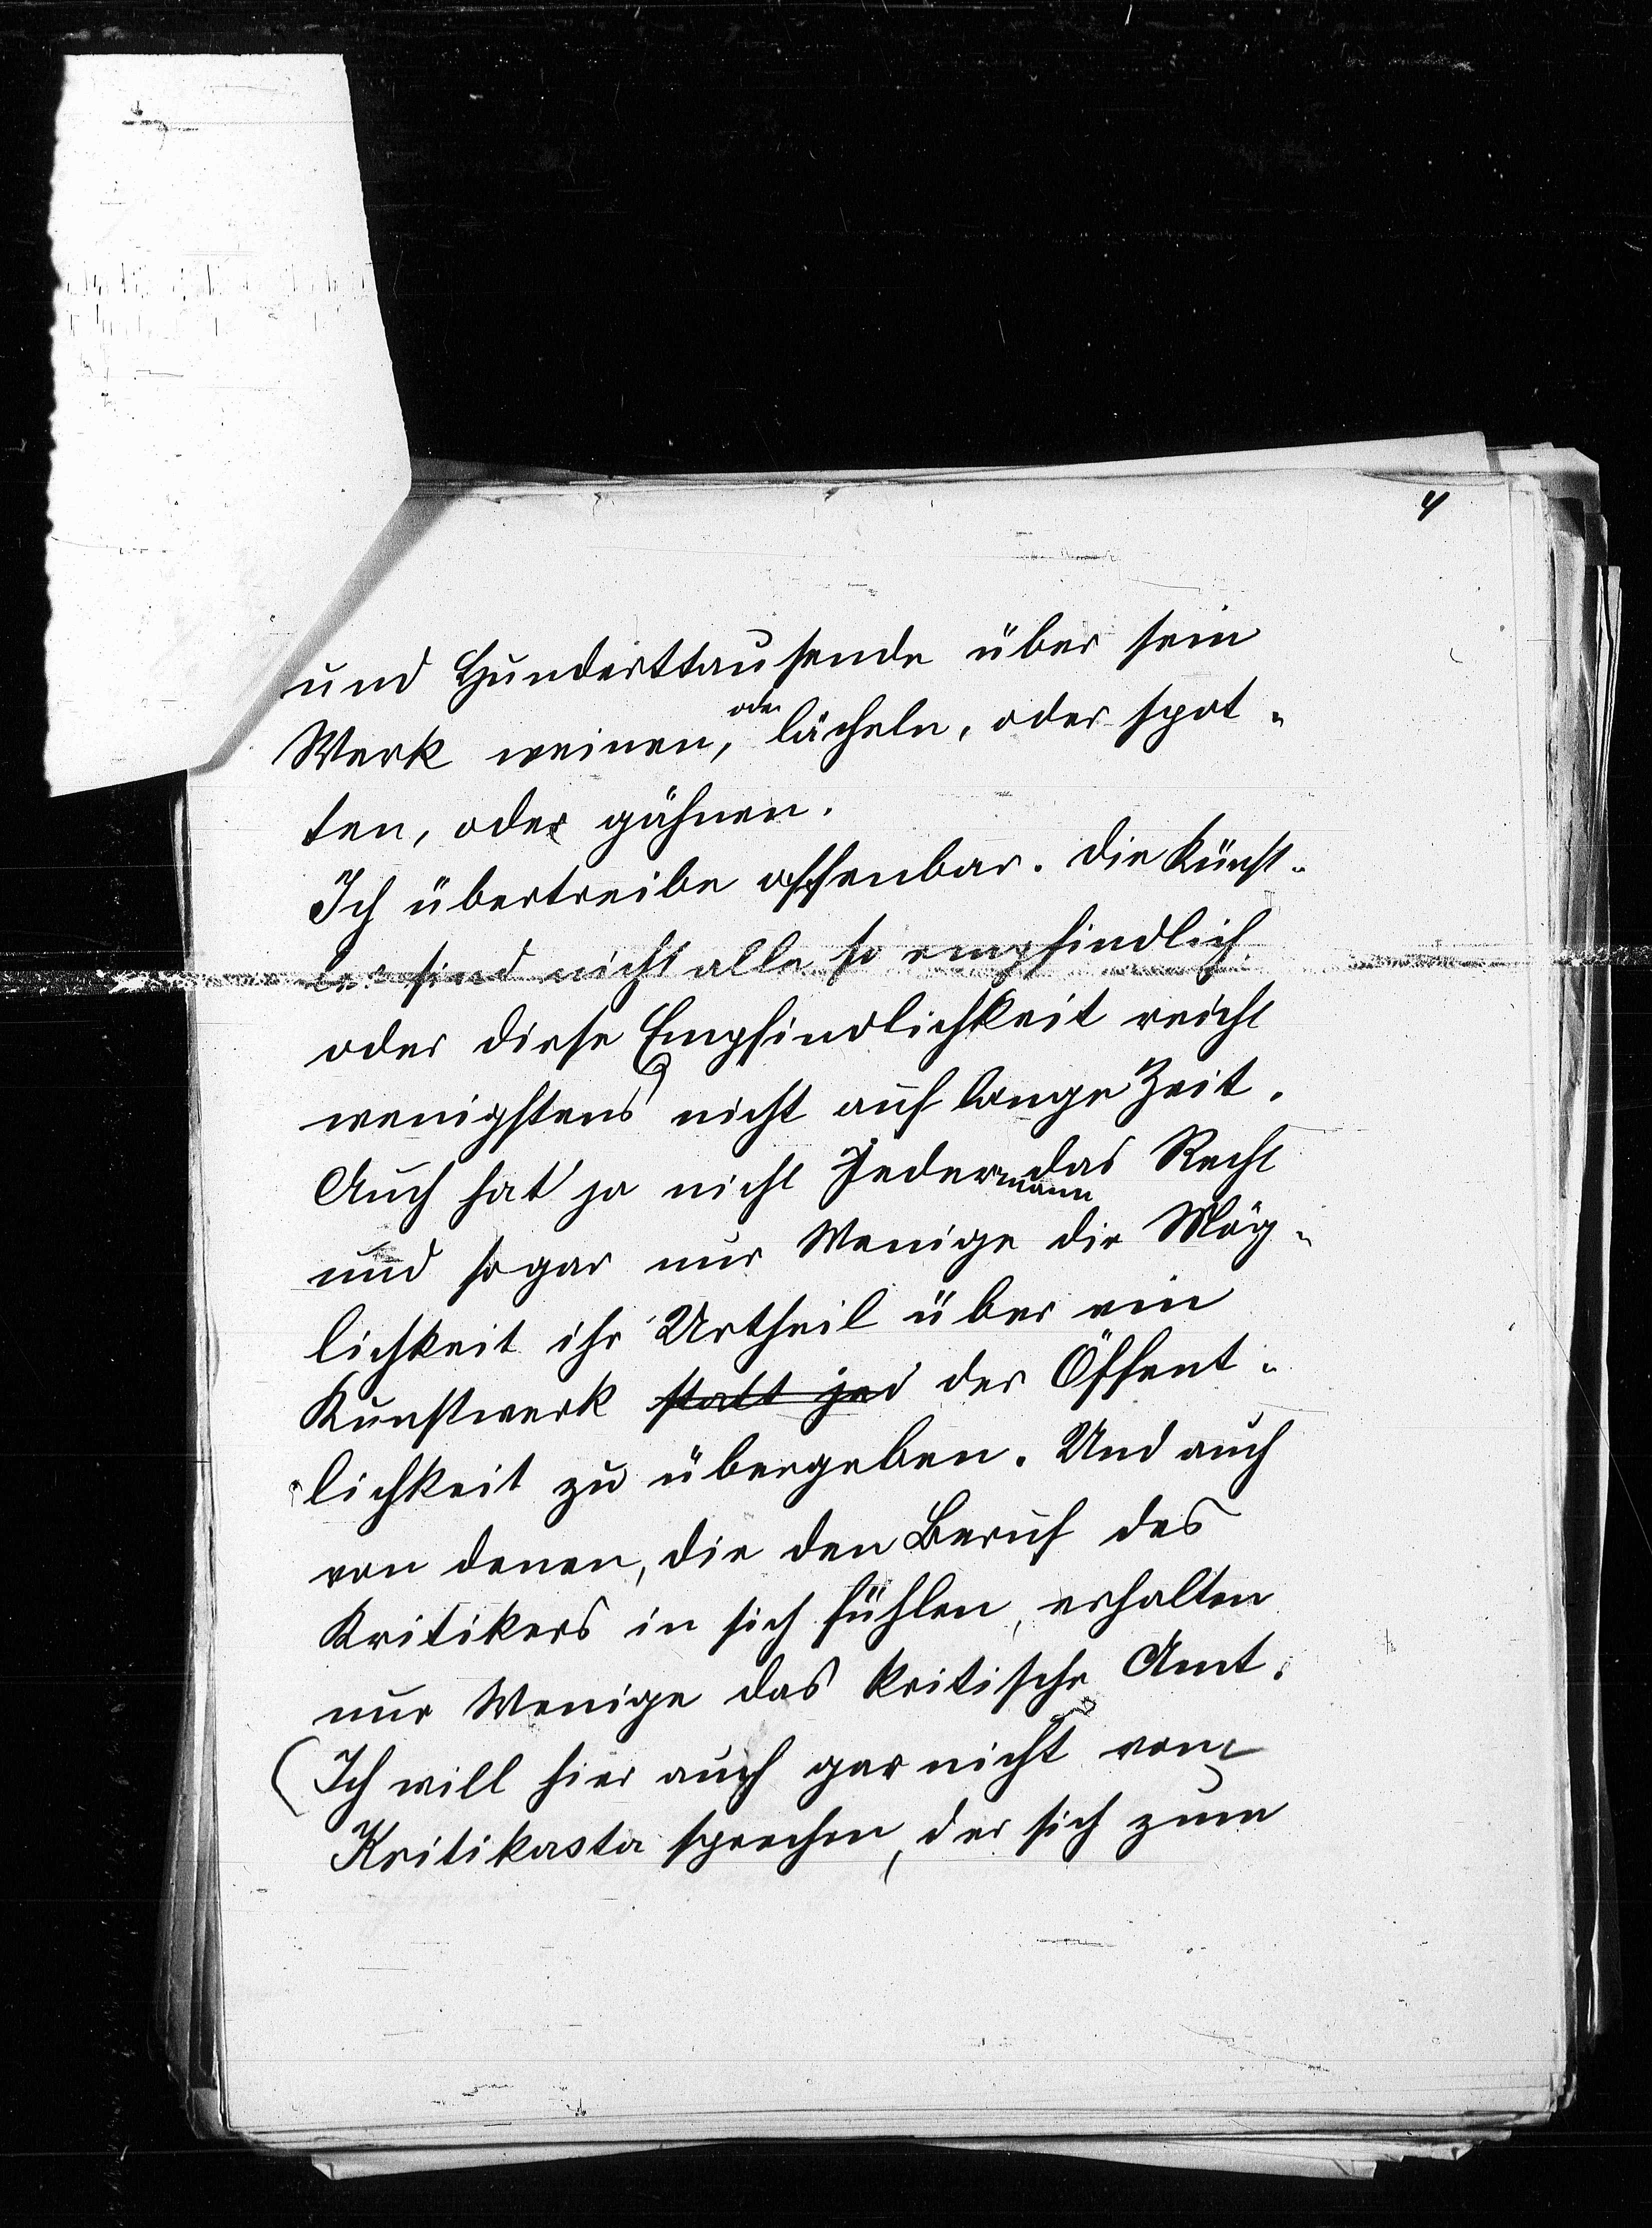 4
und Hunderttausende über sein
Werk weinen, oder lächeln, oder spot-
ten, oder gähnen.
Ich übertreibe offenbar. Die Künst-
ler sind nicht alle so empfindlich
oder diese Empfindlichkeit reicht
wenigstens nicht auf lange Zeit.
Auch hat ja nicht Jedermann das Recht
und sogar nur Wenige die Mög-
lichkeit ihr Urtheil über ein
Kunstwerk statt jed der Öffent-
lichkeit zu übergeben. Und auch
von denen, die den Beruf des
Kritikers in sich fühlen, erhalten
nur Wenige das kritische Amt.
(Ich will hier auch gar nicht vom
Kritikasta sprechen, der sich zum